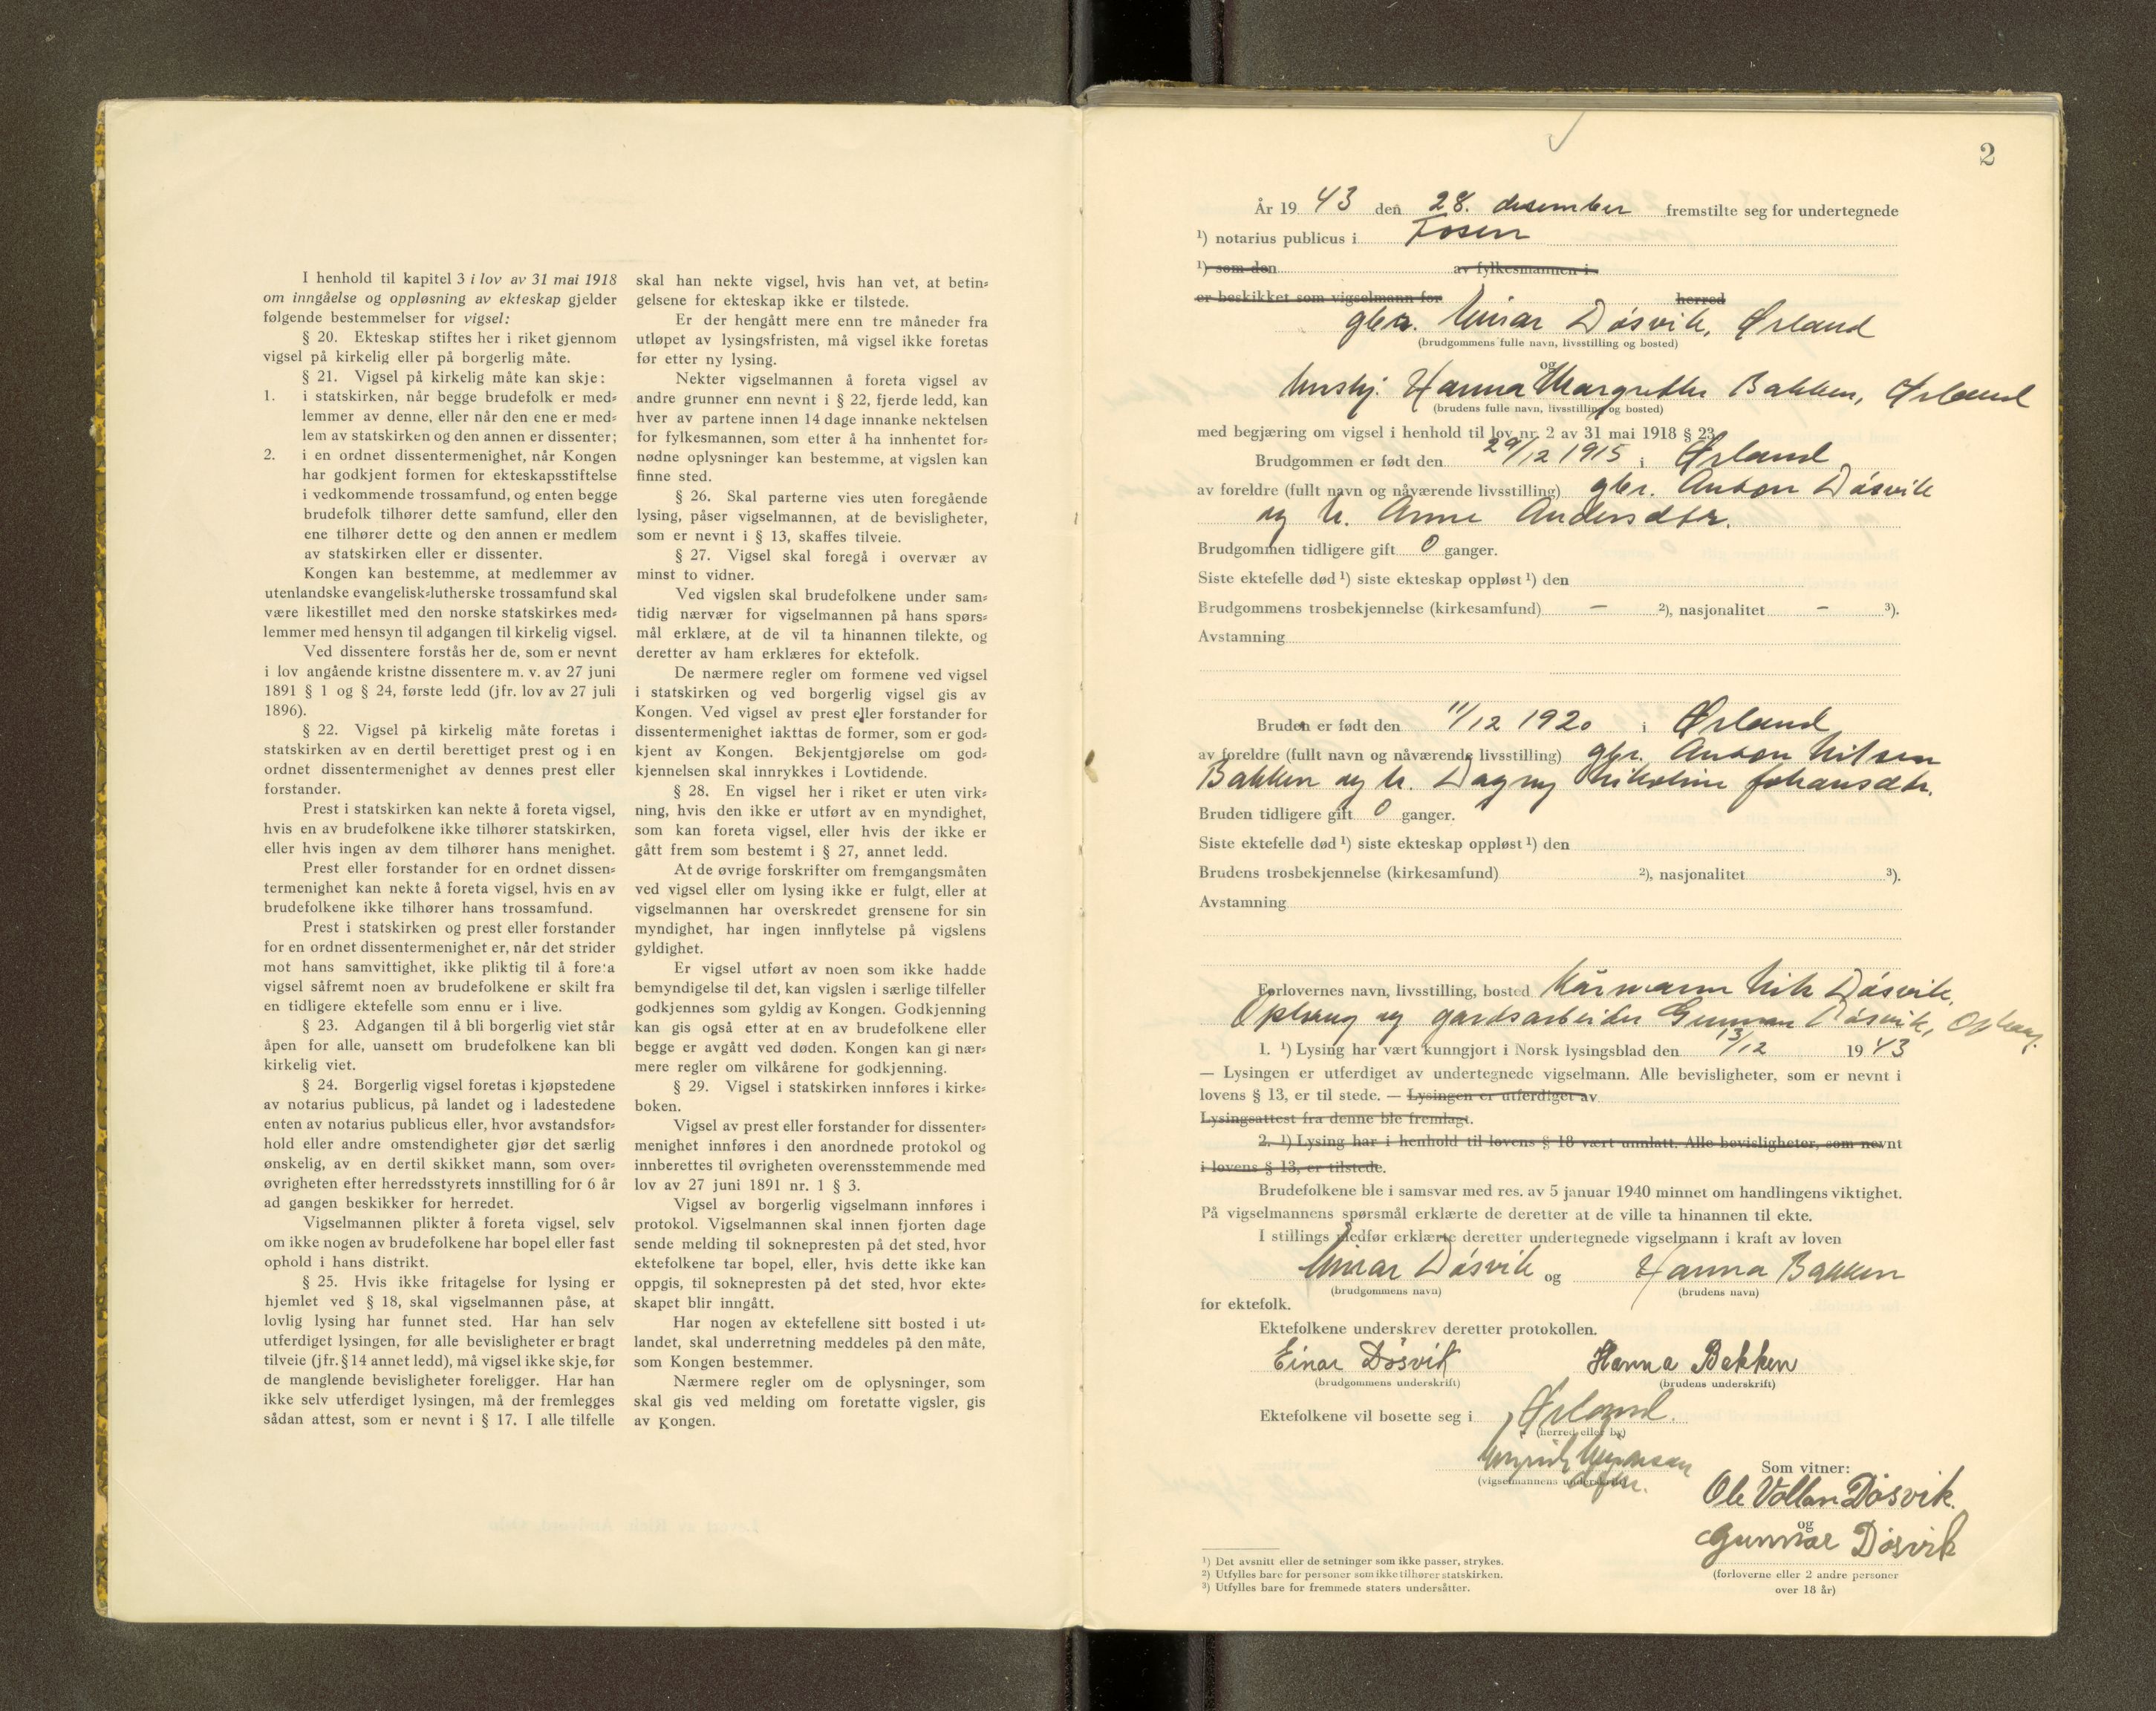 I henhold til kapitel 3 i lov av 31 mai 1918
om inngåelse og oppløsning av ekteskap gjelder
følgende bestemmelser for vigsel:
§ 20. Ekteskap stiftes her i riket gjennom
vigsel på kirkelig eller på borgerlig måte.
§ 21. Vigsel på kirkelig måte kan skje:
1. i statskirken, når begge brudefolk er med-
lemmer av denne, eller når den ene er med-
lem av statskirken og den annen er dissenter;
2. i en ordnet dissentermenighet, når Kongen
har godkjent formen for ekteskapsstiftelse
i vedkommende trossamfund, og enten begge
brudefolk tilhører dette samfund, eller den
ene tilhører dette og den annen er medlem
av statskirken eller er dissenter.
Kongen kan bestemme, at medlemmer av
utenlandske evangelisk-lutherske trossamfund skal
være likestillet med den norske statskirkes med-
lemmer med hensyn til adgangen til kirkelig vigsel.
Ved dissentere forstås her de, som er nevnt
i lov angående kristne dissentere m. v. av 27 juni
1891 § 1 og § 24, første ledd (jfr. lov av 27 juli
1896).
§ 22. Vigsel på kirkelig måte foretas i
statskirken av en dertil berettiget prest og i en
ordnet dissentermenighet av dennes prest eller
forstander.
Prest i statskirken kan nekte å foreta vigsel,
hvis en av brudefolkene ikke tilhører statskirken,
eller hvis ingen av dem tilhører hans menighet.
Prest eller forstander for en ordnet dissen-
termenighet kan nekte å foreta vigsel, hvis en av
brudefolkene ikke tilhører hans trossamfund.
Prest i statskirken og prest eller forstander
for en ordnet dissentermenighet er, når det strider
mot hans samvittighet, ikke pliktig til å foreta
vigsel såfremt noen av brudefolkene er skilt fra
en tidligere ektefelle som ennu er i live.
§ 23. Adgangen til å bli borgerlig viet står
åpen for alle, uansett om brudefolkene kan bli
kirkelig viet.
§ 24. Borgerlig vigsel foretas i kjøpstedene
av notarius publicus, på landet og i ladestedene
enten av notarius publicus eller, hvor avstandsfor-
hold eller andre omstendigheter gjør det særlig
ønskelig, av en dertil skikket mann, som over-
øvrigheten efter herredsstyrets innstilling for 6 år
ad gangen beskikker for herredet.
Vigselmannen plikter å foreta vigsel, selv
om ikke nogen av brudefolkene har bopel eller fast
ophold i hans distrikt.
§ 25. Hvis ikke fritagelse for lysing er
hjemlet ved § 18, skal vigselmannen påse, at
lovlig lysing har funnet sted. Har han selv
utferdiget lysingen, før alle bevisligheter er bragt
tilveie (jfr. § 14 annet ledd), må vigsel ikke skje, før
de manglende bevisligheter foreligger. Har han
ikke selv utferdiget lysingen, må der fremlegges
sådan attest, som er nevnt i § 17. I alle tilfelle
skal han nekte vigsel, hvis han vet, at betin-
gelsene for ekteskap ikke er tilstede.
Er der hengått mere enn tre måneder fra
utløpet av lysingsfristen, må vigsel ikke foretas
før etter ny lysing.
Nekter vigselmannen å foreta vigsel av
andre grunner enn nevnt i § 22, fjerde ledd, kan
hver av partene innen 14 dage innanke nektelsen
for fylkesmannen, som etter å ha innhentet for-
nødne oplysninger kan bestemme, at vigslen kan
finne sted.
§ 26. Skal parterne vies uten foregående
lysing, påser vigselmannen, at de bevisligheter,
som er nevnt i § 13, skaffes tilveie.
§ 27. Vigsel skal foregå i overvær av
minst to vidner.
Ved vigslen skal brudefolkene under sam-
tidig nærvær for vigselmannen på hans spørs-
mål erklære, at de vil ta hinannen tilekte, og
deretter av ham erklæres for ektefolk.
De nærmere regler om formene ved vigsel
i statskirken og ved borgerlig vigsel gis av
Kongen. Ved vigsel av prest eller forstander for
dissentermenighet iakttas de former, som er god-
kjent av Kongen. Bekjentgjørelse om god-
kjennelsen skal innrykkes i Lovtidende.
§ 28. En vigsel her i riket er uten virk-
ning, hvis den ikke er utført av en myndighet,
som kan foreta vigsel, eller hvis der ikke er
gått frem som bestemt i § 27, annet ledd.
At de øvrige forskrifter om fremgangsmåten
ved vigsel eller om lysing ikke er fulgt, eller at
vigselmannen har overskredet grensene for sin
myndighet, har ingen innflytelse på vigslens
gyldighet.
Er vigsel utført av noen som ikke hadde
bemyndigelse til det, kan vigslen i særlige tilfeller
godkjennes som gyldig av Kongen. Godkjenning
kan gis også etter at en av brudefolkene eller
begge er avgått ved døden. Kongen kan gi nær-
mere regler om vilkårene for godkjenning.
§ 29. Vigsel i statskirken innføres i kirke-
boken.
Vigsel av prest eller forstander for dissenter-
menighet innføres i den anordnede protokol og
innberettes til øvrigheten overensstemmende med
lov av 27 juni 1891 nr. 1 § 3.
Vigsel av borgerlig vigselmann innføres i
protokol. Vigselmannen skal innen fjorten dage
sende melding til soknepresten på det sted, hvor
ektefolkene tar bopel, eller, hvis dette ikke kan
oppgis, til soknepresten på det sted, hvor ekte-
skapet blir inngått.
Har nogen av ektefellene sitt bosted i ut-
landet, skal underretning meddeles på den måte,
som Kongen bestemmer.
Nærmere regler om de oplysninger, som
skal gis ved melding om foretatte vigsler, gis
av Kongen.
2
År 19 43 den 28. desember fremstilte seg for undertegnede
1) notarius publicus i Fosen
1) som den av fylkesmannen i
er beskikket som vigselmann for herred
gbr. Einar Døsvik, Ørland
(brudgommens fulle navn, livsstilling og bosted)
og
hushj. Hanna Margrethe Bakken, Ørland
(brudens fulle navn, livsstilling og bosted)
med begjæring om vigsel i henhold til lov nr. 2 av 31 mai 1918 § 23.
Brudgommen er født den 29/12 1915 i Ørland
av foreldre (fullt navn og nåværende livsstilling) gbr. Anton Døsvik
og h. Anne Andersdtr.
Brudgommen tidligere gift 0 ganger.
Siste ektefelle død 1) siste ekteskap oppløst 1) den
Brudgommens trosbekjennelse (kirkesamfund) — 2), nasjonalitet — 3).
Avstamning
Bruden er født den 11/12 1920 i Ørland
av foreldre (fullt navn og nåværende livsstilling) gbr. Anton Nilsen
Bakken og h. Dagny Nikoline Johansdtr.
Bruden tidligere gift 0 ganger.
Siste ektefelle død 1) siste ekteskap oppløst 1) den
Brudens trosbekjennelse (kirkesamfund) 2), nasjonalitet 3).
Avstamning
Forlovernes navn, livsstilling, bosted Kårmann Nils Døsvik,
Ophaug og gårdsarbeider Gunnar Døsvik, Ophaug.
1. 1) Lysing har vært kunngjort i Norsk lysingsblad den 13/12 19 43
— Lysingen er utferdiget av undertegnede vigselmann. Alle bevisligheter, som er nevnt i
lovens § 13, er til stede. — Lysingen er utferdiget av
Lysingsattest fra denne ble fremlagt.
2. 1) Lysing har i henhold til lovens § 18 vært unnlatt. Alle bevisligheter, som nevnt
i lovens § 13, er tilstede.
Brudefolkene ble i samsvar med res. av 5 januar 1940 minnet om handlingens viktighet.
På vigselmannens spørsmål erklærte de deretter at de ville ta hinannen til ekte.
I stillings medfør erklærte deretter undertegnede vigselmann i kraft av loven
Einar Døsvik og Hanna Bakken
(brudgommens navn) (brudens navn)
for ektefolk.
Ektefolkene underskrev deretter protokollen.
Einar Døsvik Hanna Bakken
(brudgommens underskrift) (brudens underskrift)
Ektefolkene vil bosette seg i Ørland.
(herred eller by)
(vigselmannens underskrift)
Som vitner:
Ole Vollan Døsvik.
og
Gunnar Døsvik
(forloverne eller 2 andre personer
over 18 år)
1) Det avsnitt eller de setninger som ikke passer, strykes.
2) Utfylles bare for personer som ikke tilhører statskirken.
3) Utfylles bare for fremmede staters undersåtter.